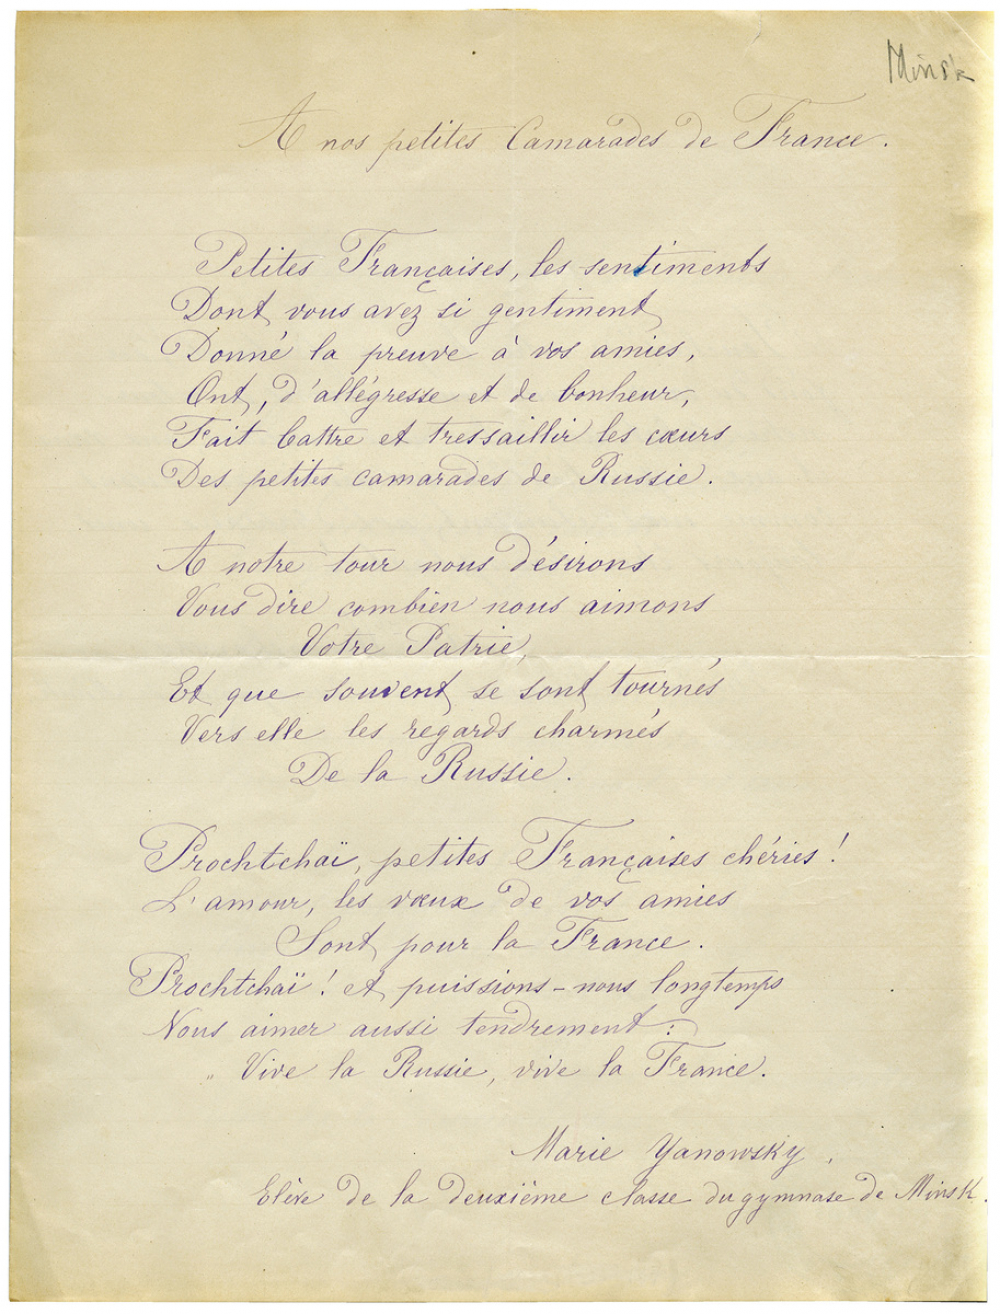 Minsk
A nos petites Camarades de France.
Petites Françaises, les sentiments
Dont vous avez si gentiment
Donné la preuve à vos amies,
Ont, d'allégresse et de bonheur,
Fait battre et tressaillir les cœurs
Des petites camarades de Russie.
A notre tour nous désirons
Vous dire combien nous aimons
Votre Patrie,
Et que souvent se sont tournés
Vers elle les regards charmés
De la Russie.
Prochtchaï, petites Françaises chéries !
L'amour, les vœux de vos amies
Sont pour la France.
Prochtchaï ! et puissions-nous longtemps
Nous aimer aussi tendrement :
" Vive la Russie, vive la France.
Marie Yanowsky.
Elève de la deuxième classe du gymnase de Minsk.